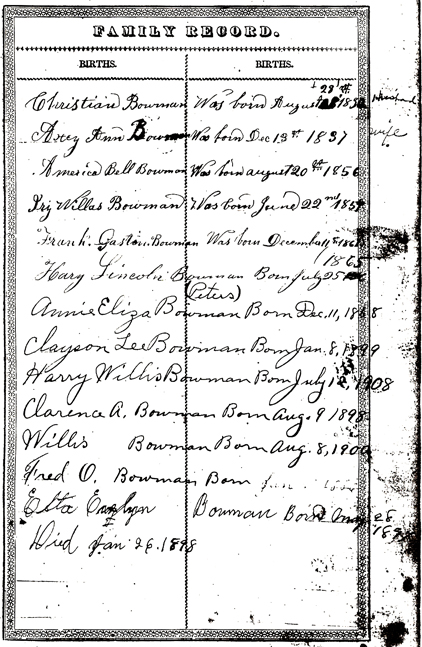 FAMILY RECORD.
BIRTHS. BIRTHS.
Christian Bowman Was born August 28th
Husband
Arey Ann Bowman Was born Dec 13th 1837
wife
America Bell Bowman Was born august 20th 1856
Willas Bowman Was born June 22nd
Frank. Gaston. Bowman Was born December
1865
Hary Lincoln Bowman Born July 25
(Peters)
Annie Eliza Bowman Born Dec. 11, 1868
Clayson Lee Bowman Born Jan. 8, 1899
Harry Willis Bowman Born July 1908
Clarence A. Bowman Born Aug. 9 1898
Willis Bowman Born Aug. 8, 1900
Fred O. Bowman Born
Etta Bowman Born May 28
Died Jan 26. 1898